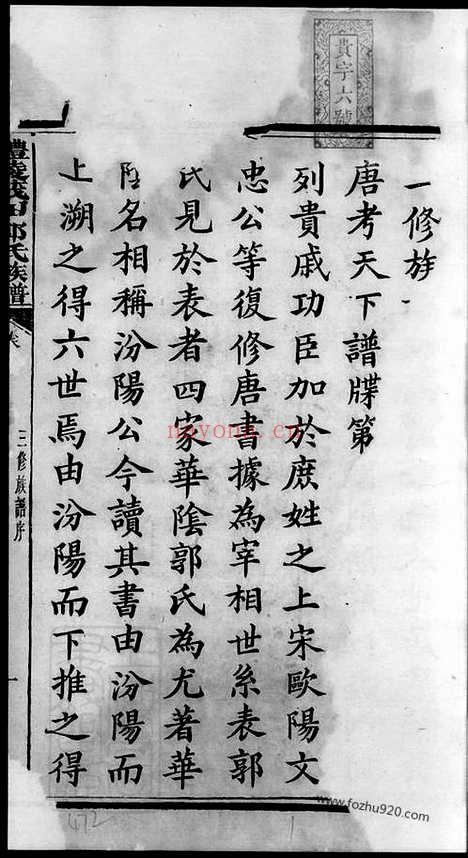 貴字六號
一修族
唐考天下譜牒第
列貴戚功臣加於庶姓之上宋歐陽文
忠公等復修唐書據為宰相世系表郭
氏見於表者四家華陰郭氏為尤著華
陰名相稱汾陽公今讀其書由汾陽而
上溯之得六世焉由汾陽而下推之得
氏族譜
三修族譜序
一
nayona.cn
www.fozhu920.com
472
1